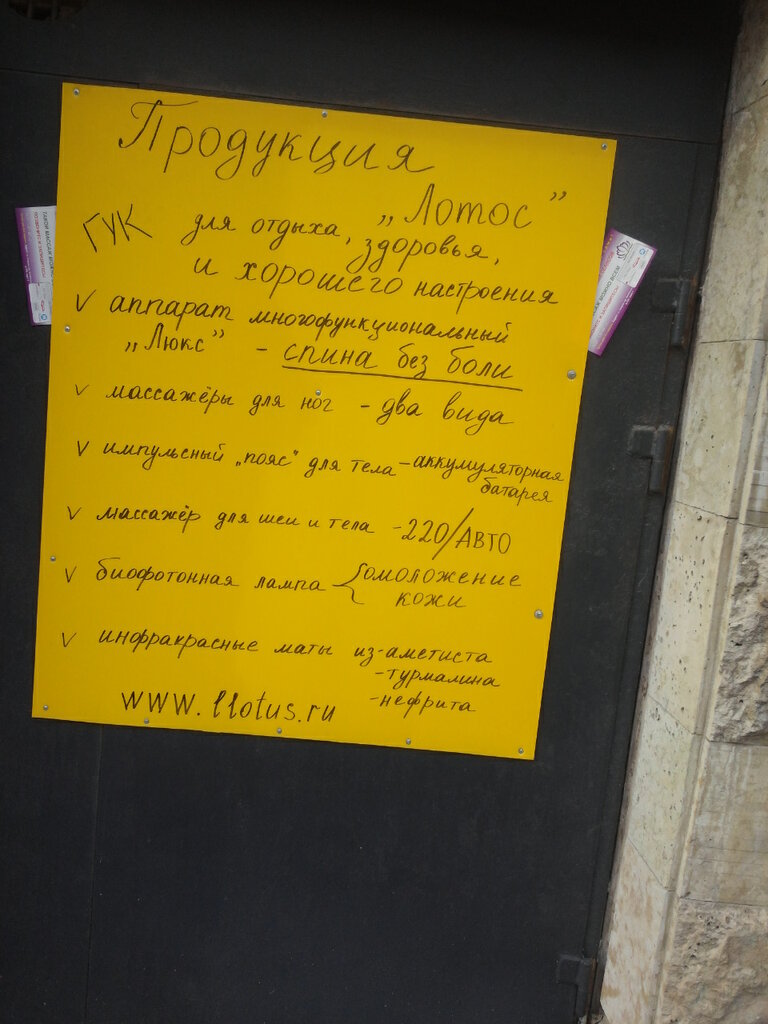 Продукция
„Лотос”
ГУК для отдыха, здоровья,
и хорошего настроения
V аппарат многофункциональный
„Люкс” - спина без боли
V массажёры для ног - два вида
V импульсный „пояс” для тела - аккумуляторная
батарея
V массажёр для шеи и тела - 220/АВТО
V биофотонная лампа омоложение
кожи
V инфракрасные маты из - аметиста
- турмалина
- нефрита
www.llotus.ru